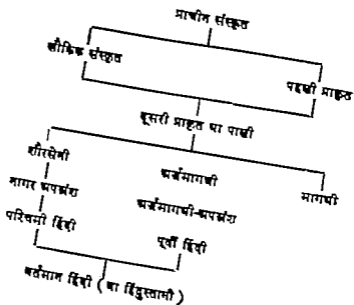 प्राचीन संस्कृत
लौकिक संस्कृत
पहली प्राकृत
दूसरी प्राकृत या पाली
शौरसेनी
अर्द्धमागधी
मागधी
नागर अपभ्रंश
अर्द्धमागधी-अपभ्रंश
पश्चिमी हिंदी
पूर्वी हिंदी
वर्तमान हिंदी ( वा हिंदुस्तानी )